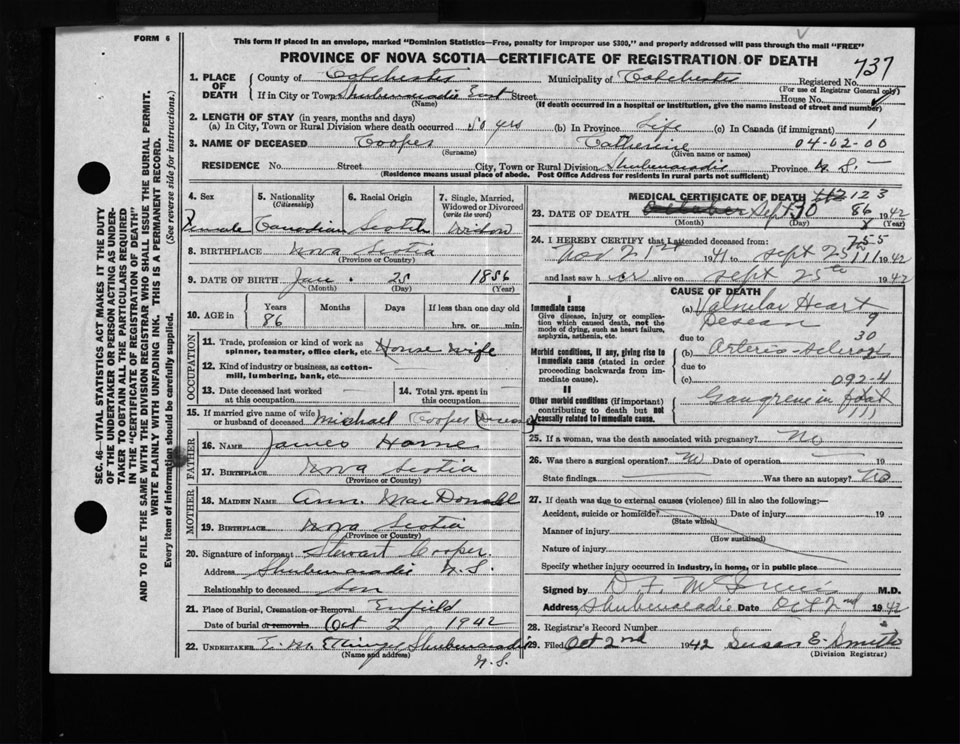 FORM 6
This form if placed in an envelope, marked "Dominion Statistics—Free, penalty for improper use $300," and properly addressed will pass through the mail "FREE"
PROVINCE OF NOVA SCOTIA—CERTIFICATE OF REGISTRATION OF DEATH
737
1. PLACE OF DEATH County of Colchester Municipality of Colchester Registered No.
(For use of Registrar General only)
If in City or Town Shubenacadie East Street House No.
(Name) (If death occurred in a hospital or institution, give the name instead of street and number)
2. LENGTH OF STAY (in years, months and days)
(a) In City, Town or Rural Division where death occurred 50 yrs (b) In Province Life (c) In Canada (if immigrant) 1
3. NAME OF DECEASED Cooper Catherine 04-62-00
(Surname) (Given name or names)
RESIDENCE No. Street City, Town or Rural Division Shubenacadie Province N.S.
(Residence means usual place of abode. Post Office Address for residents in rural parts not sufficient)
4. Sex 5. Nationality (Citizenship) 6. Racial Origin 7. Single, Married, Widowed or Divorced (write the word)
Female Canadian Scotch Widow
8. BIRTHPLACE Nova Scotia
(Province or Country)
9. DATE OF BIRTH Jan. 25 1856
(Month) (Day) (Year)
10. AGE in Years Months Days If less than one day old
86 hrs. or min.
OCCUPATION
11. Trade, profession or kind of work as spinner, teamster, office clerk, etc. House wife
12. Kind of industry or business, as cotton-mill, lumbering, bank, etc.
13. Date deceased last worked at this occupation 14. Total yrs. spent in this occupation
15. If married give name of wife or husband of deceased Michael Cooper
FATHER
16. NAME James Horne
17. BIRTHPLACE Nova Scotia
(Province or Country)
MOTHER
18. MAIDEN NAME Ann MacDonall
19. BIRTHPLACE Nova Scotia
(Province or Country)
20. Signature of informant Stewart Cooper.
Address Shubenacadie N.S.
Relationship to deceased Son
21. Place of Burial, Cremation or Removal Enfield
Date of burial or removal Oct 2 1942
22. UNDERTAKER E. M. Ettinger Shubenacadie
(Name and address) N.S.
MEDICAL CERTIFICATE OF DEATH 112 123
23. DATE OF DEATH October Sept 30 86 1942
(Month) (Day) (Year)
24. I HEREBY CERTIFY that I attended deceased from:
Nov 21st 1941 to Sept 25 1942
and last saw her alive on Sept 25th 1942
CAUSE OF DEATH
I
Immediate cause
Give disease, injury or complication which caused death, not the mode of dying, such as heart failure, asphyxia, asthenia, etc.
(a) Valvular Heart
Desease 9
due to 30
Morbid conditions, if any, giving rise to immediate cause (stated in order proceeding backwards from immediate cause).
(b) Arterio-sclerosis
due to
(c) 092-4
II
Other morbid conditions (if important) contributing to death but not causally related to immediate cause.
Gangrene in foot
25. If a woman, was the death associated with pregnancy? No
26. Was there a surgical operation? No Date of operation 19
State findings Was there an autopsy? No
27. If death was due to external causes (violence) fill in also the following:—
Accident, suicide or homicide? Date of injury 19
(State which)
Manner of injury
(How sustained)
Nature of injury
Specify whether injury occurred in industry, in home, or in public place
Signed by M.D.
Address Shubenacadie Date Oct 2nd 1942
28. Registrar's Record Number
29. Filed Oct 2nd 1942 Susan E. Smith
(Division Registrar)
SEC. 46—VITAL STATISTICS ACT MAKES IT THE DUTY
OF THE UNDERTAKER OR PERSON ACTING AS UNDER-
TAKER TO OBTAIN ALL THE PARTICULARS REQUIRED
IN THE "CERTIFICATE OF REGISTRATION OF DEATH"
AND TO FILE THE SAME WITH THE DIVISION REGISTRAR WHO SHALL ISSUE THE BURIAL PERMIT.
WRITE PLAINLY WITH UNFADING INK. THIS IS A PERMANENT RECORD.
Every item of information should be carefully supplied. (See reverse side for instructions.)